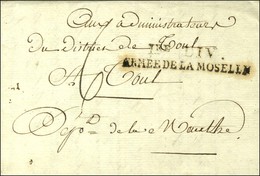 Aux administrateurs
du District de Toul
DIV.
ARMÉE DE LA MOSELLE
A Toul
Dep.t de la Meurthe